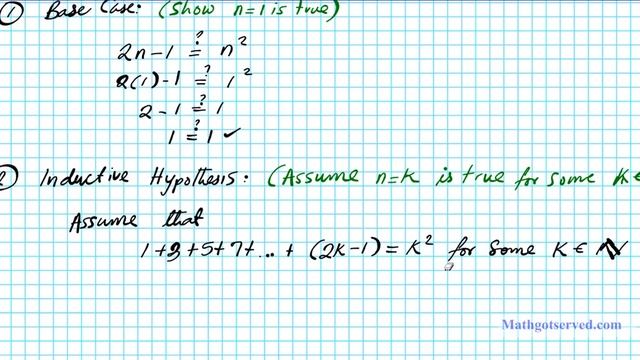 ① Base Case: (Show n=1 is true)
2n-1 ≟ n²
2(1)-1 ≟ 1²
2-1 ≟ 1
1 ≟ 1 ✓
Inductive Hypothesis: (Assume n=K is true for some K∈
Assume that
1+3+5+7+... + (2K-1) = K² for some K∈ N
Mathgotserved.com